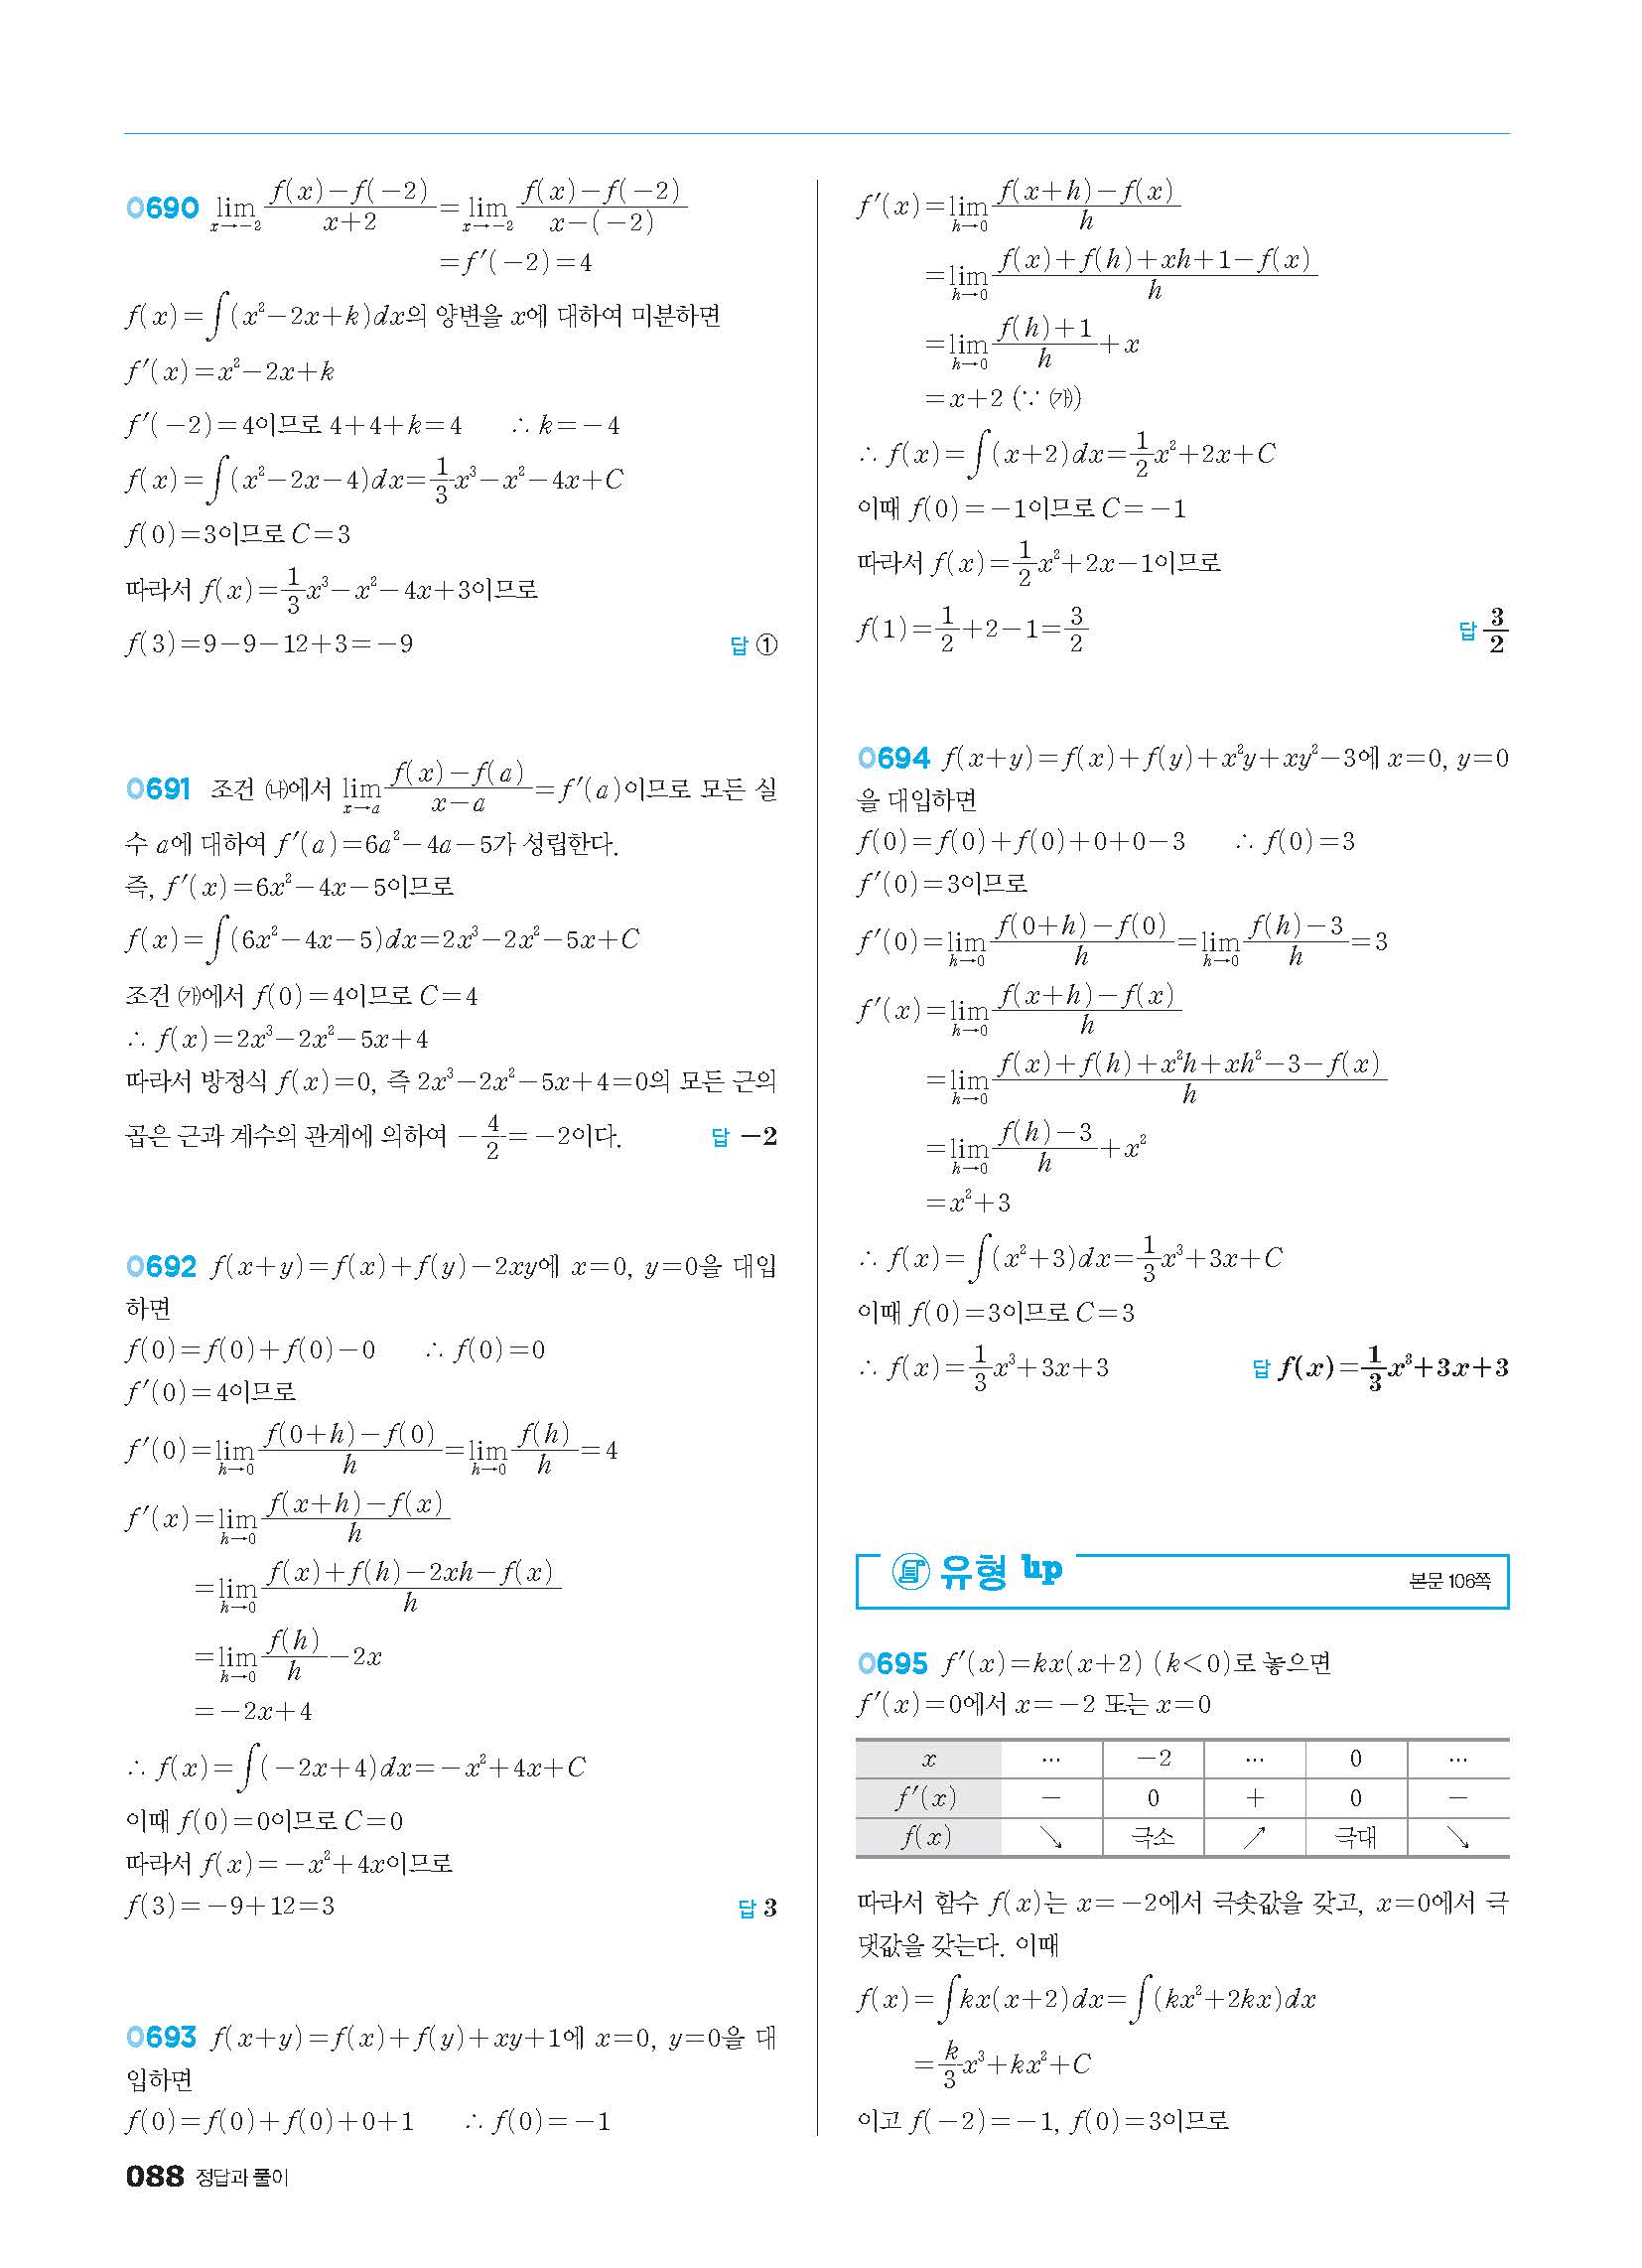 0690 lim_{x→-2} (f(x)-f(-2))/(x+2) = lim_{x→-2} (f(x)-f(-2))/(x-(-2))
=f′(-2)=4
f(x)=∫(x²-2x+k)dx의 양변을 x에 대하여 미분하면
f′(x)=x²-2x+k
f′(-2)=4이므로 4+4+k=4 ∴ k=-4
f(x)=∫(x²-2x-4)dx=1/3x³-x²-4x+C
f(0)=3이므로 C=3
따라서 f(x)=1/3x³-x²-4x+3이므로
f(3)=9-9-12+3=-9 답 ①
0691 조건 ㈏에서 lim_{x→a} (f(x)-f(a))/(x-a)=f′(a)이므로 모든 실
수 a에 대하여 f′(a)=6a²-4a-5가 성립한다.
즉, f′(x)=6x²-4x-5이므로
f(x)=∫(6x²-4x-5)dx=2x³-2x²-5x+C
조건 ㈎에서 f(0)=4이므로 C=4
∴ f(x)=2x³-2x²-5x+4
따라서 방정식 f(x)=0, 즉 2x³-2x²-5x+4=0의 모든 근의
곱은 근과 계수의 관계에 의하여 -4/2=-2이다. 답 -2
0692 f(x+y)=f(x)+f(y)-2xy에 x=0, y=0을 대입
하면
f(0)=f(0)+f(0)-0 ∴ f(0)=0
f′(0)=4이므로
f′(0)=lim_{h→0} (f(0+h)-f(0))/h=lim_{h→0} f(h)/h=4
f′(x)=lim_{h→0} (f(x+h)-f(x))/h
=lim_{h→0} (f(x)+f(h)-2xh-f(x))/h
=lim_{h→0} f(h)/h-2x
=-2x+4
∴ f(x)=∫(-2x+4)dx=-x²+4x+C
이때 f(0)=0이므로 C=0
따라서 f(x)=-x²+4x이므로
f(3)=-9+12=3 답 3
0693 f(x+y)=f(x)+f(y)+xy+1에 x=0, y=0을 대
입하면
f(0)=f(0)+f(0)+0+1 ∴ f(0)=-1
f′(x)=lim_{h→0} (f(x+h)-f(x))/h
=lim_{h→0} (f(x)+f(h)+xh+1-f(x))/h
=lim_{h→0} (f(h)+1)/h+x
=x+2 (∵ ㈎)
∴ f(x)=∫(x+2)dx=1/2x²+2x+C
이때 f(0)=-1이므로 C=-1
따라서 f(x)=1/2x²+2x-1이므로
f(1)=1/2+2-1=3/2 답 3/2
0694 f(x+y)=f(x)+f(y)+x²y+xy²-3에 x=0, y=0
을 대입하면
f(0)=f(0)+f(0)+0+0-3 ∴ f(0)=3
f′(0)=3이므로
f′(0)=lim_{h→0} (f(0+h)-f(0))/h=lim_{h→0} (f(h)-3)/h=3
f′(x)=lim_{h→0} (f(x+h)-f(x))/h
=lim_{h→0} (f(x)+f(h)+x²h+xh²-3-f(x))/h
=lim_{h→0} (f(h)-3)/h+x²
=x²+3
∴ f(x)=∫(x²+3)dx=1/3x³+3x+C
이때 f(0)=3이므로 C=3
∴ f(x)=1/3x³+3x+3 답 f(x)=1/3x³+3x+3
유형 up 본문 106쪽
0695 f′(x)=kx(x+2) (k<0)로 놓으면
f′(x)=0에서 x=-2 또는 x=0
x … -2 … 0 …
f′(x) - 0 + 0 -
f(x) ↘ 극소 ↗ 극대 ↘
따라서 함수 f(x)는 x=-2에서 극솟값을 갖고, x=0에서 극
댓값을 갖는다. 이때
f(x)=∫kx(x+2)dx=∫(kx²+2kx)dx
=k/3x³+kx²+C
이고 f(-2)=-1, f(0)=3이므로
088 정답과 풀이